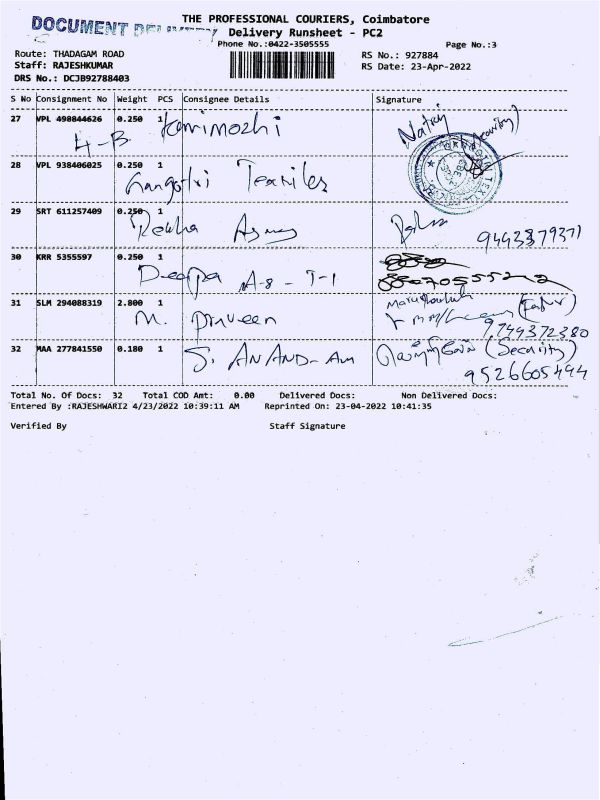 DOCUMENT DELIVERY
THE PROFESSIONAL COURIERS, Coimbatore
Delivery Runsheet - PC2
Phone No.:0422-3505555
Page No.:3
Route: THADAGAM ROAD
RS No.: 927884
Staff: RAJESHKUMAR
RS Date: 23-Apr-2022
DRS No.: DCJB92788403
S No Consignment No Weight PCS Consignee Details Signature
27 VPL 498844626 0.250 1 Kanimozhi
4-B
28 VPL 938406025 0.250 1
Gangotri Textiles
29 SRT 611257409 0.250 1
Rekha
30 KRR 5355597 0.250 1
Deepa A-8-T-1
31 SLM 294088319 2.800 1
M. Praveen (Father)
9744372380
32 MAA 277841550 0.180 1 S. ANAND-Am (Security)
9526605494
Total No. Of Docs: 32 Total COD Amt: 0.00 Delivered Docs: Non Delivered Docs:
Entered By :RAJESHWARI2 4/23/2022 10:39:11 AM Reprinted On: 23-04-2022 10:41:35
Verified By Staff Signature